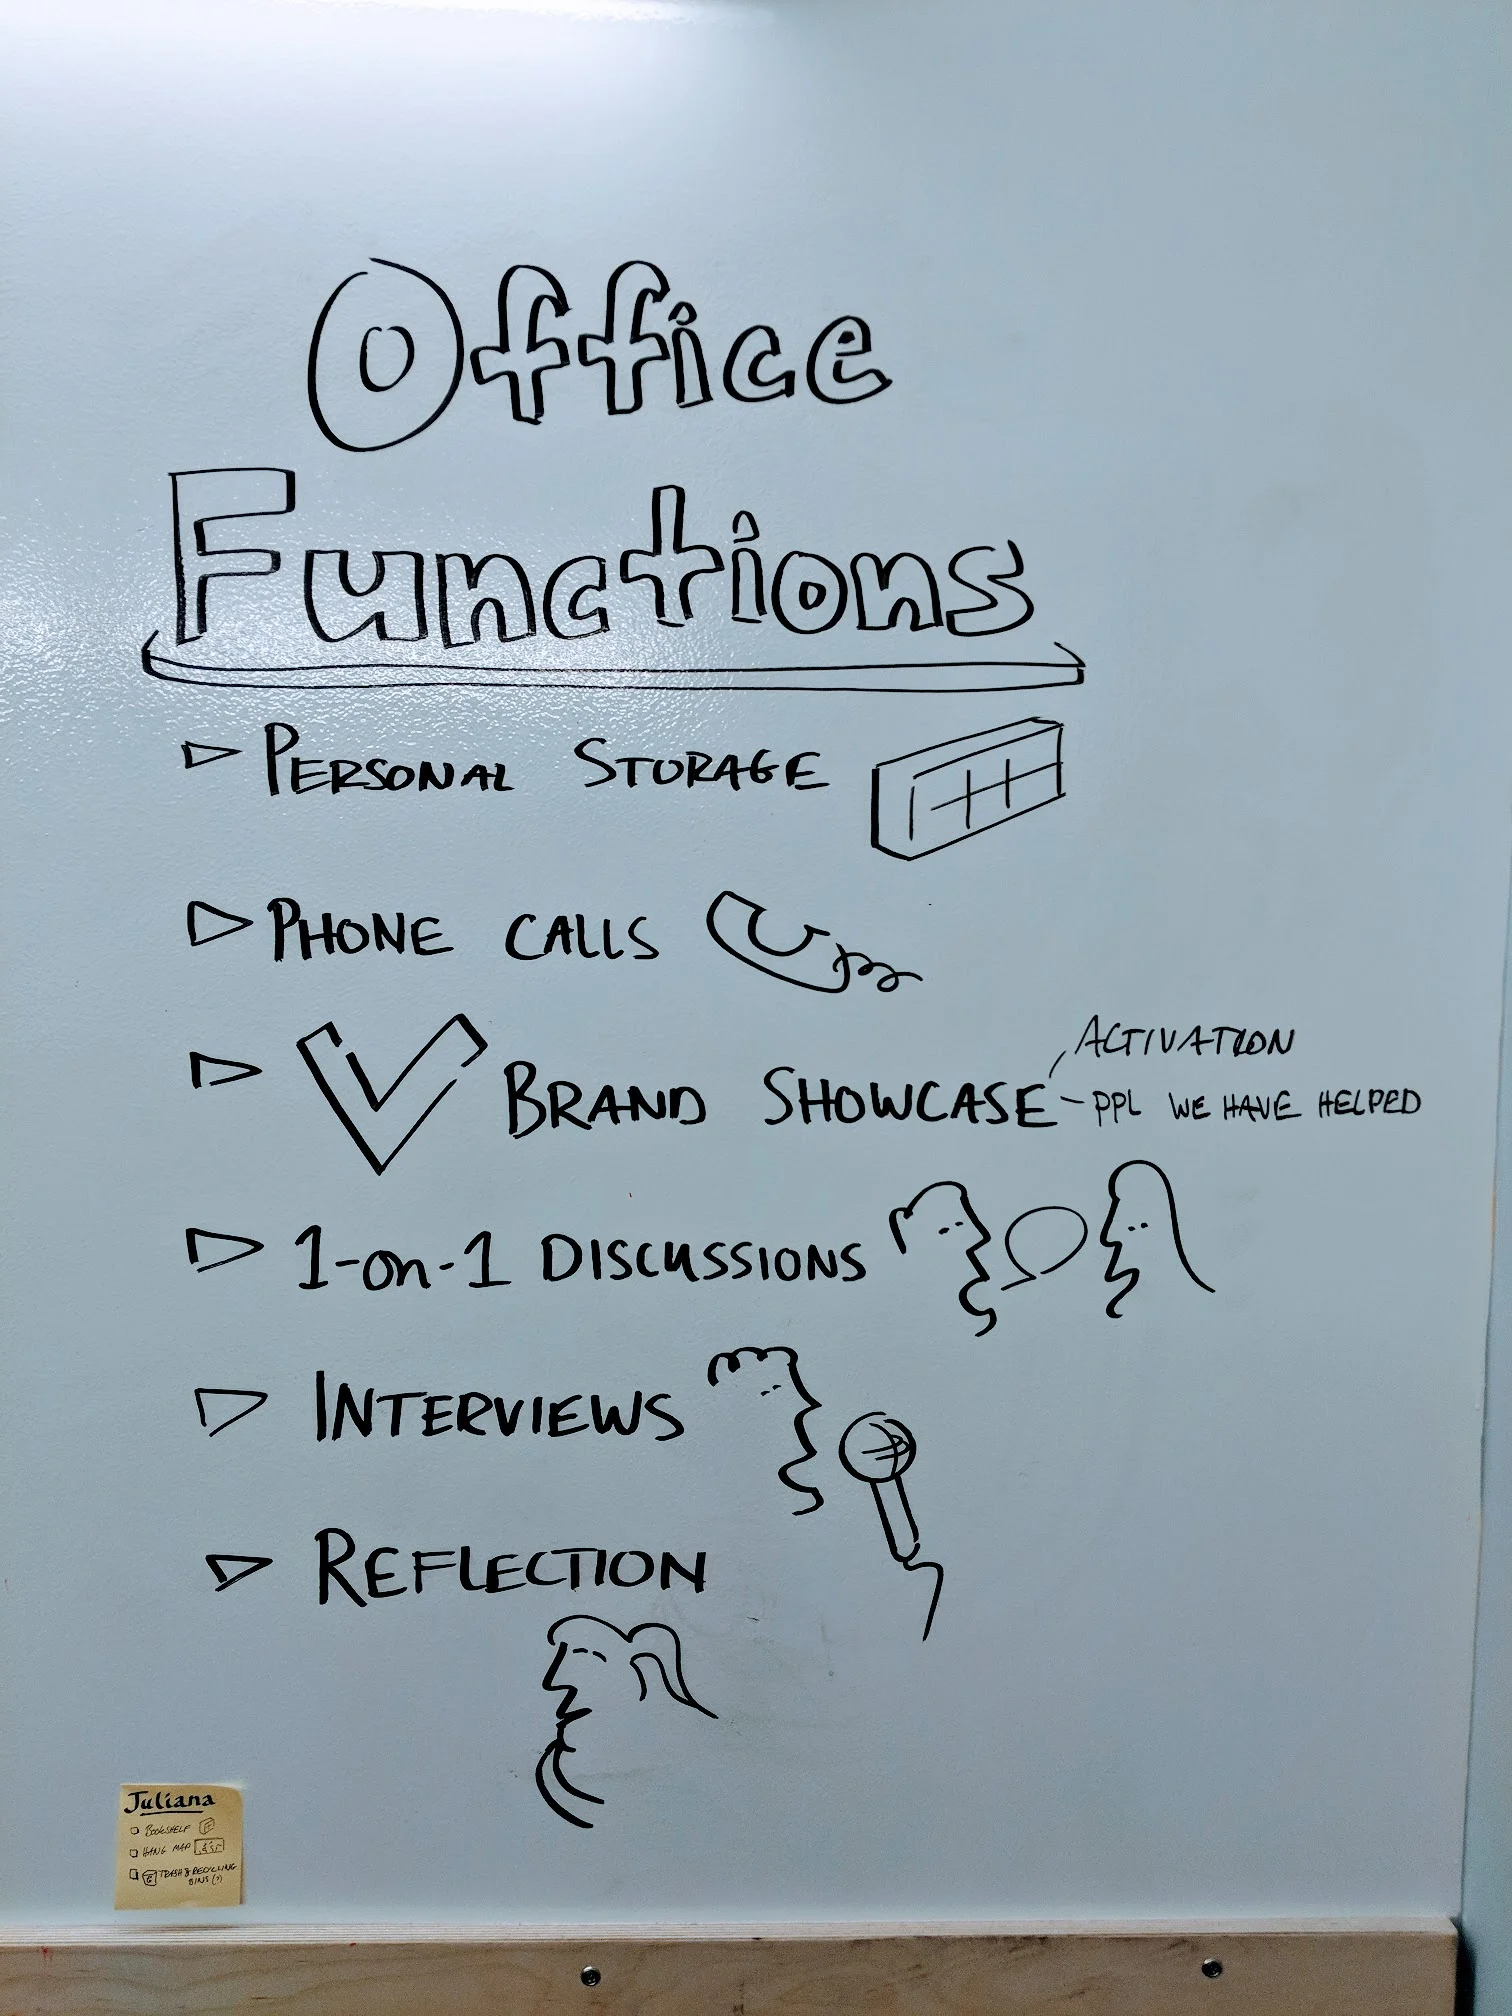 Office
Functions
PERSONAL STORAGE
PHONE CALLS
BRAND SHOWCASE
ACTIVATION
PPL WE HAVE HELPED
1-on-1 DISCUSSIONS
INTERVIEWS
REFLECTION
Juliana
BOOKSHELF
HANG MAP
TRASH & RECYCLING
BINS (?)